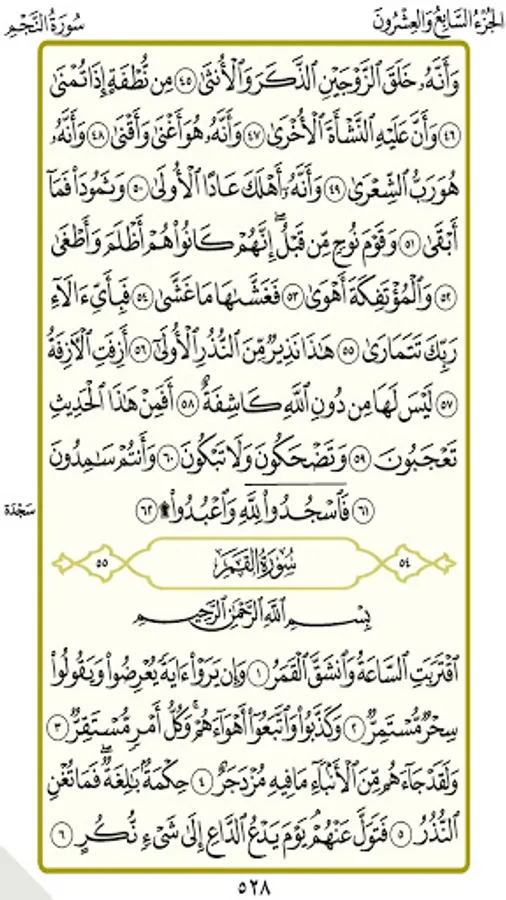 الجزء السابع والعشرون
سورة النجم
وَأَنَّهُۥ خَلَقَ ٱلزَّوْجَيْنِ ٱلذَّكَرَ وَٱلْأُنثَىٰ ٤٥ مِن نُّطْفَةٍ إِذَا تُمْنَىٰ
٤٦ وَأَنَّ عَلَيْهِ ٱلنَّشْأَةَ ٱلْأُخْرَىٰ ٤٧ وَأَنَّهُۥ هُوَ أَغْنَىٰ وَأَقْنَىٰ ٤٨ وَأَنَّهُۥ
هُوَ رَبُّ ٱلشِّعْرَىٰ ٤٩ وَأَنَّهُۥٓ أَهْلَكَ عَادًا ٱلْأُولَىٰ ٥٠ وَثَمُودَا۟ فَمَآ
أَبْقَىٰ ٥١ وَقَوْمَ نُوحٍ مِّن قَبْلُ ۖ إِنَّهُمْ كَانُوا۟ هُمْ أَظْلَمَ وَأَطْغَىٰ
٥٢ وَٱلْمُؤْتَفِكَةَ أَهْوَىٰ ٥٣ فَغَشَّىٰهَا مَا غَشَّىٰ ٥٤ فَبِأَىِّ ءَالَآءِ
رَبِّكَ تَتَمَارَىٰ ٥٥ هَٰذَا نَذِيرٌ مِّنَ ٱلنُّذُرِ ٱلْأُولَىٰٓ ٥٦ أَزِفَتِ ٱلْءَازِفَةُ
٥٧ لَيْسَ لَهَا مِن دُونِ ٱللَّهِ كَاشِفَةٌ ٥٨ أَفَمِنْ هَٰذَا ٱلْحَدِيثِ
تَعْجَبُونَ ٥٩ وَتَضْحَكُونَ وَلَا تَبْكُونَ ٦٠ وَأَنتُمْ سَٰمِدُونَ
٦١ فَٱسْجُدُوا۟ لِلَّهِ وَٱعْبُدُوا۟ ۩ ٦٢
سجدة
٥٤ سورة القمر ٥٥
بِسْمِ ٱللَّهِ ٱلرَّحْمَٰنِ ٱلرَّحِيمِ
ٱقْتَرَبَتِ ٱلسَّاعَةُ وَٱنشَقَّ ٱلْقَمَرُ ١ وَإِن يَرَوْا۟ ءَايَةً يُعْرِضُوا۟ وَيَقُولُوا۟
سِحْرٌ مُّسْتَمِرٌّ ٢ وَكَذَّبُوا۟ وَٱتَّبَعُوٓا۟ أَهْوَآءَهُمْ ۚ وَكُلُّ أَمْرٍ مُّسْتَقِرٌّ ٣
وَلَقَدْ جَآءَهُم مِّنَ ٱلْأَنۢبَآءِ مَا فِيهِ مُزْدَجَرٌ ٤ حِكْمَةٌۢ بَٰلِغَةٌ ۖ فَمَا تُغْنِ
ٱلنُّذُرُ ٥ فَتَوَلَّ عَنْهُمْ ۘ يَوْمَ يَدْعُ ٱلدَّاعِ إِلَىٰ شَىْءٍ نُّكُرٍ ٦
٥٢٨